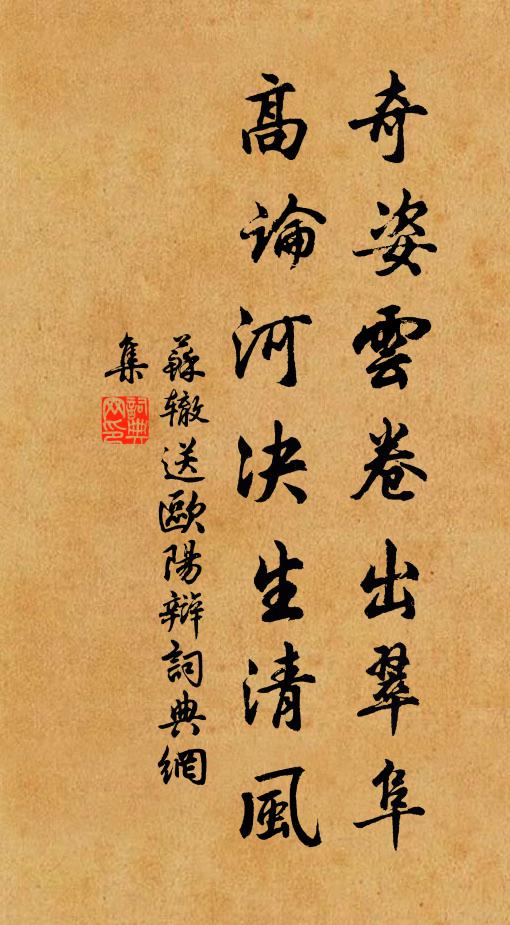 奇姿雲卷出翠阜
高論河決生清風
蘇轍送歐陽辯詞典網
集
詞典網印